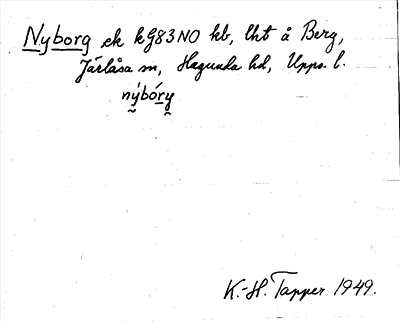 Nyborg ek kg83NO kb, lht å Berg,
Järlåsa sn, Hagunda hd, Upps. l.
nýbóry
K.-H. Tapper 1949.